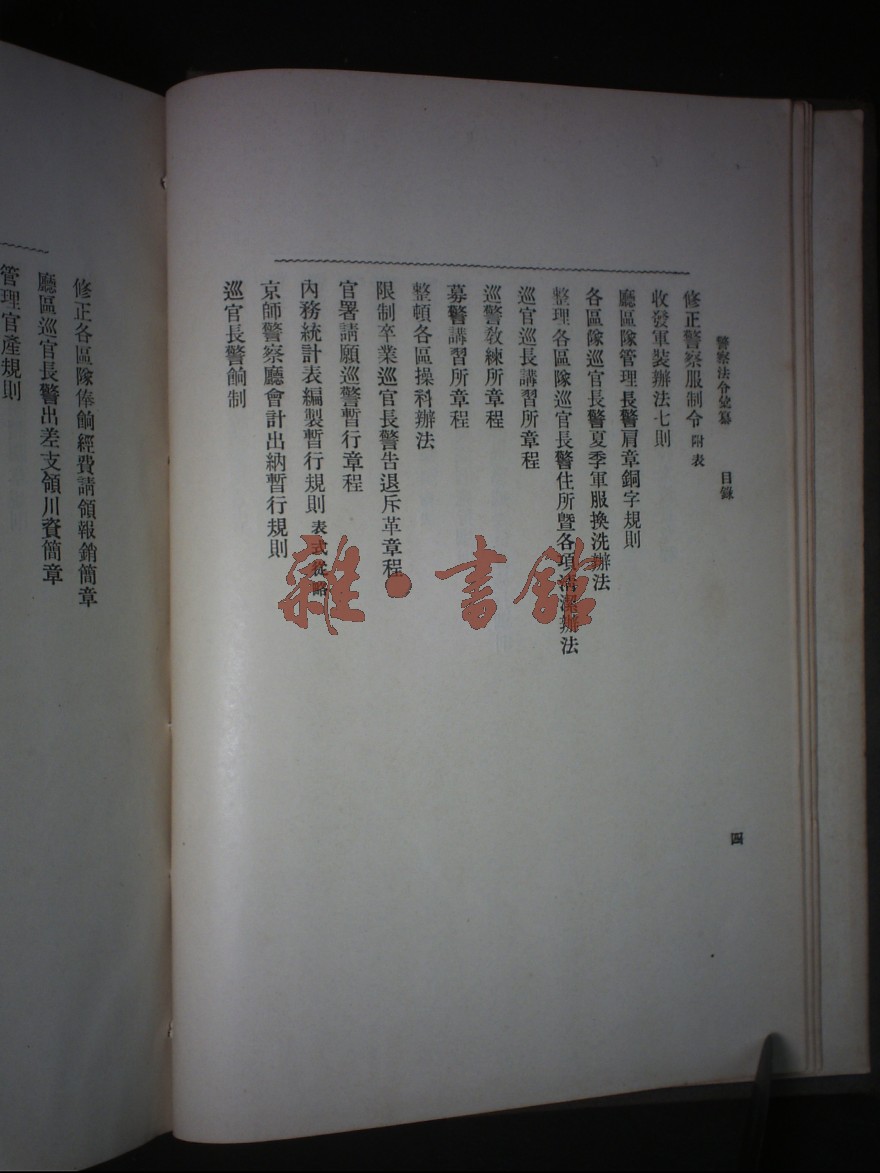 警察法令彙纂 目錄
四
修正警察服制令 附表
收發軍裝辦法七則
廳區隊管理長警肩章銅字規則
各區隊巡官長警夏季軍服換洗辦法
整理各區隊巡官長警住所曁各項清潔辦法
巡官巡長講習所章程
巡警教練所章程
募警講習所章程
整頓各區操科辦法
限制卒業巡官長警告退斥革章程
官署請願巡警暫行章程
內務統計表編製暫行規則 表式從略
京師警察廳會計出納暫行規則
巡官長警餉制
修正各區隊俸餉經費請領報銷簡章
廳區巡官長警出差支領川資簡章
管理官產規則
雜·書館